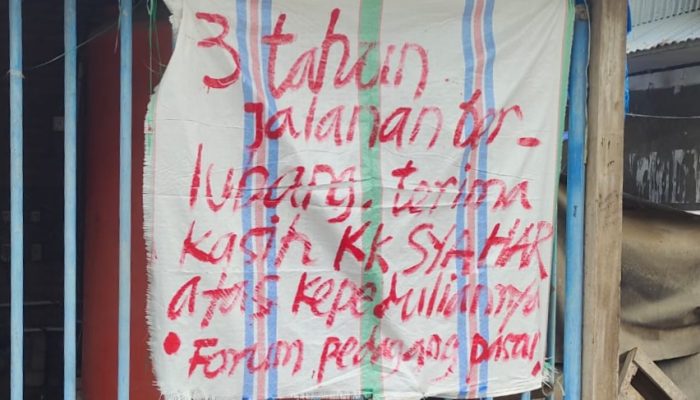 3 tahun
jalanan ber_
lubang. terima
kasih KK SYAHAR
atas kepeduliannya
• Forum pedagang pasar.